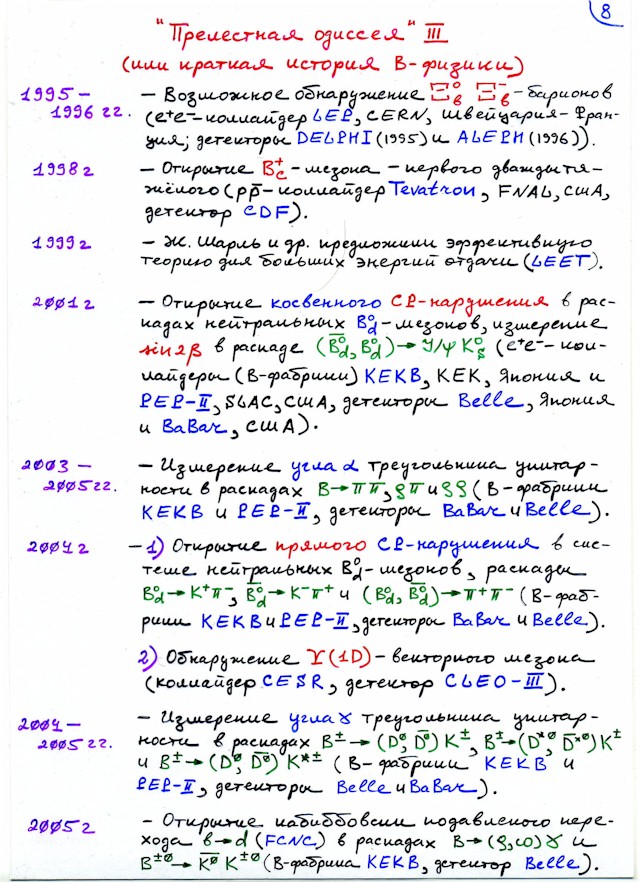 8
"Прелестная одиссея" III
(или краткая история B-физики)
1995 – 1996 гг. – Возможное обнаружение Ξ⁰_b Ξ⁻_b - барионов
(e+e- - коллайдер LEP, CERN, Швейцария-Фран-
ция; детекторы DELPHI (1995) и ALEPH (1996)).
1998 г – Открытие B⁺_c - мезона - первого дваждытя-
жёлого (pp̄ - коллайдер Tevatron, FNAL, США,
детектор CDF).
1999 г – Ж. Шарль и др. предложили эффективную
теорию для больших энергий отдачи (LEET).
2001 г – Открытие косвенного CP-нарушения в рас-
падах нейтральных B⁰_d - мезонов, измерение
sin2β в распаде (B̄⁰_d, B⁰_d) → J/ψ K⁰_S (e+e- - кол-
лайдеры (B-фабрики) KEKB, KEK, Япония и
PEP-II, SLAC, США, детекторы Belle, Япония
и BaBar, США).
2003 – 2005 гг. – Измерение угла α треугольника унитар-
ности в распадах B → ππ, ρπ и ρρ (B-фабрики
KEKB и PEP-II, детекторы BaBar и Belle).
2004 г – 1) Открытие прямого CP-нарушения в сис-
теме нейтральных B⁰_d - мезонов, распады
B⁰_d → K⁺π⁻, B̄⁰_d → K⁻π⁺ и (B⁰_d, B̄⁰_d) → π⁺π⁻ (B-фаб-
рики KEKB и PEP-II, детекторы BaBar и Belle).
2) Обнаружение Υ(1D) - векторного мезона
(коллайдер CESR, детектор CLEO-III).
2004 – 2005 гг. – Измерение угла γ треугольника унитар-
ности в распадах B± → (D⁰, D̄⁰) K±, B± → (D*⁰, D̄*⁰) K±
и B± → (D⁰, D̄⁰) K*± (B-фабрики KEKB и
PEP-II, детекторы Belle и BaBar).
2005 г – Открытие кабиббовски подавленого пере-
хода b → d (FCNC) в распадах B → (ρ, ω) γ и
B±⁰ → K̄⁰ K±⁰ (B-фабрика KEKB, детектор Belle).